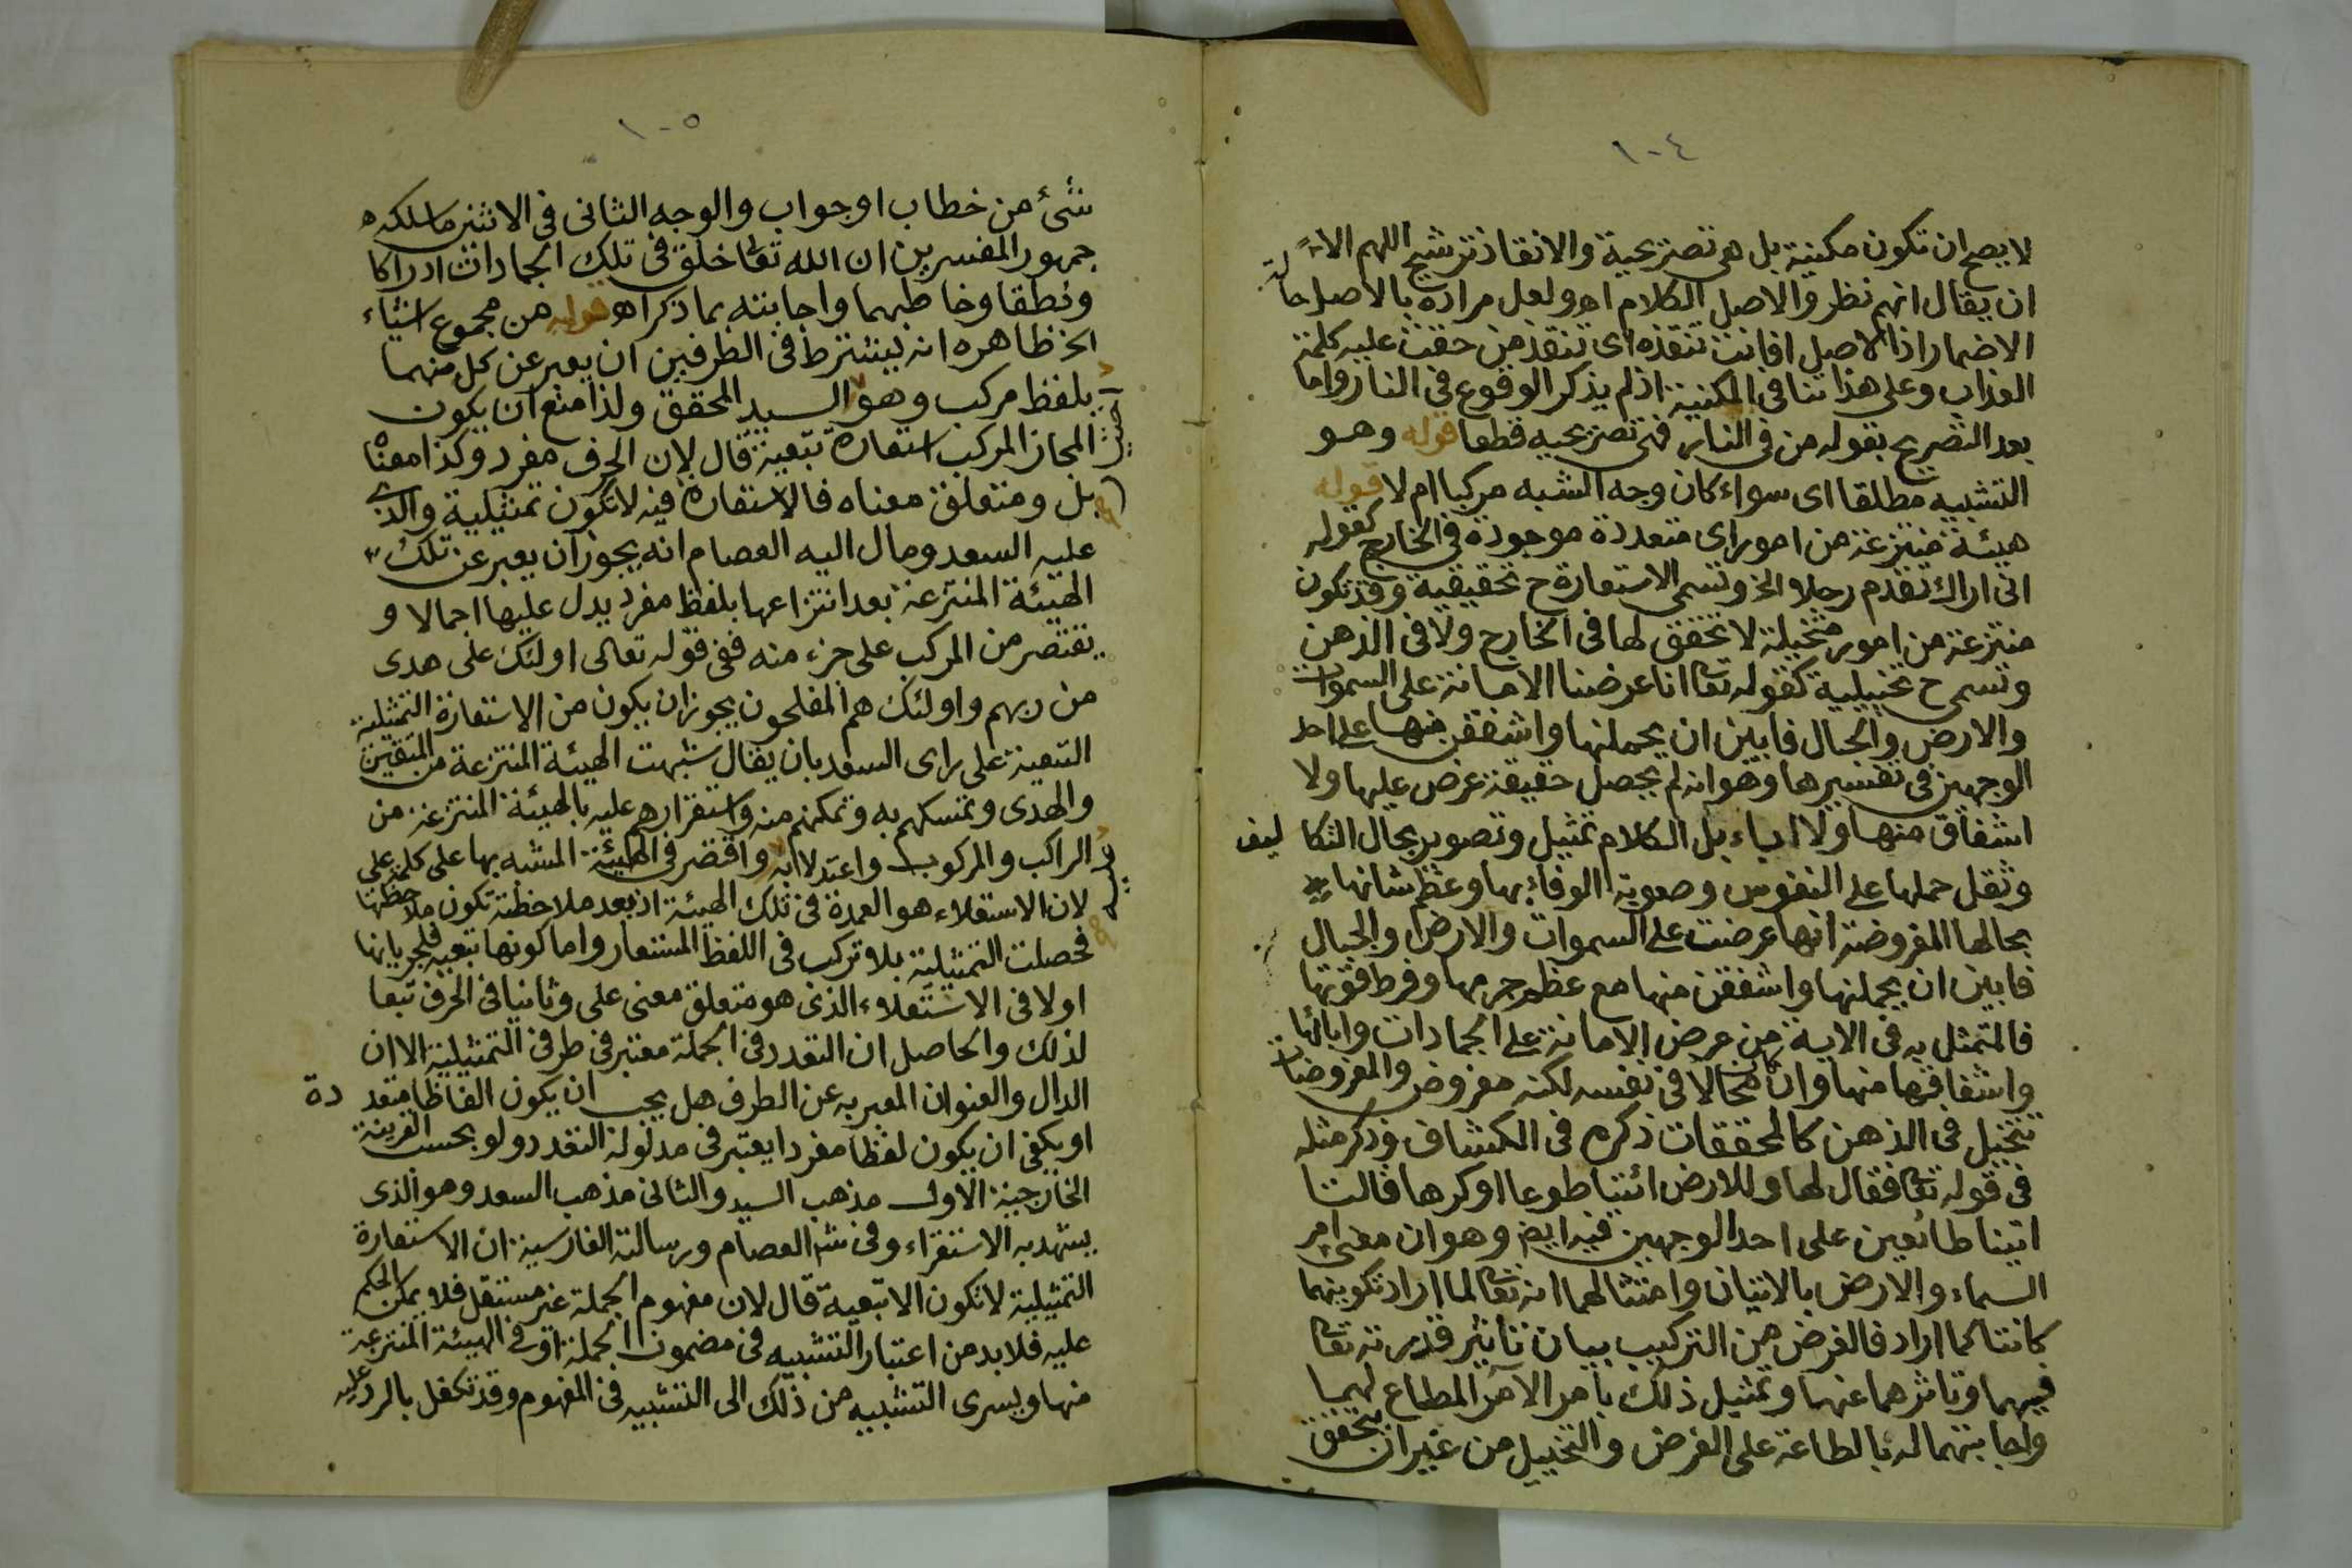 ١٠٤
لا يصح ان تكون مكنية بل هى تصريحية والانقاذ ترشيح اللهم الا
ان يقال انهم نظروا لاصل الكلام اه ولعل مراده بالاصل حالة
الاضمار اذ الاصل افانت تنقذه اى تنقذ من حقت عليه كلمة
العذاب وعلى هذا تتأتى المكنية اذ لم يذكر الوقوع فى النار واما
بعد التصريح بقوله من فى النار فهى تصريحيه قطعا قوله وهو
التشبيه مطلقا اى سواء كان وجه الشبه مركبا ام لا قوله
هيئة منتزعة من امور اى متعددة موجودة في الخارج كقوله
انى اراك تقدم رجلا الخ وتسمى الاستعارة ح تحقيقية وقد تكون
منتزعة من امور متخيلة لا تحقق لها فى الخارج ولا فى الذهن
وتسمى ح تخييلية كقوله تعا انا عرضنا الامانة على السموات
والارض والجبال فابين ان يحملنها واشفقن منها على احد
الوجهين فى تفسيرها وهو انه لم يحصل حقيقة عرض عليها ولا
اشفاق منها ولا اباء بل الكلام تمثيل وتصوير بحال التكا ليف
وثقل حملها على النفوس وصعوبة الوفاء بها وعظم شانها
بحالها المفروضة انها عرضت على السموات والارض والجبال
فابين ان يحملنها واشفقن منها مع عظم جرمها وفرط قوتها
فالمتمثل به فى الاية من عرض الامانة على الجمادات وابائها
واشفاقها منها وان كان محالا فى نفسه لكنه مفروض والمفروضات
تتخيل فى الذهن كالمحققات ذكره فى الكشاف وذكر مثله
فى قوله تعا فقال لها وللارض ائتيا طوعا اوكرها قالتا
اتينا طائعين على احد الوجهين فيه ايض وهو ان معنى امر
السماء والارض بالاتيان وامتثالهما انه تعا لما اراد تكوينهما
كانتا كما اراد فالغرض من التركيب بيان تأثير قدرته تعا
فيهما وتاثرهما عنها وتمثيل ذلك بأمر الآمر المطاع لهما
واجابتهما له بالطاعة على الفرض والتخييل من غير ان يتحقق
١٠٥
شئ من خطاب اوجواب والوجه الثانى فى الاثنين ما سلكه
جمهور المفسرين ان الله تعا خلق فى تلك الجمادات ادراكا
ونطقا وخاطبهما واجابته بما ذكر اه قوله من مجموع اشياء
الخ ظاهره انه يشترط فى الطرفين ان يعبر عن كل منهما
بلفظ مركب وهو السيد المحقق ولذا منع ان يكون
المجاز المركب استعارة تبعية قال لان الحرف مفرد وكذا معناه
بل ومتعلق معناه فالاستعارة فيه لا تكون تمثيلية والذى
عليه السعد ومال اليه العصام انه يجوز ان يعبر عن تلك
الهيئة المنتزعة بعد انتزاعها بلفظ مفرد يدل عليها اجمالا و
يقتصر من المركب على جزء منه ففى قوله تعالى اولئك على هدى
من ربهم واولئك هم المفلحون يجوز ان يكون من الاستعارة التمثيلية
التبعية على راى السعد بان يقال شبهت الهيئة المنتزعة من المتقين
والهدى وتمسكهم به وتمكنهم منه واستقرارهم عليه بالهيئة المنتزعة من
الراكب والمركوب واعتدلا به واقتصر فى الهيئة المشبه بها على كلمة على
لان الاستعلاء هو العمدة فى تلك الهيئة اذ بعد ملاحظته تكون ملاحظتها
فحصلت التمثيلية بلا تركب فى اللفظ المستعار واما كونها تبعيه فلجريانها
اولا فى الاستعلاء الذى هو متعلق معنى على وثانيا فى الحرف تبعا
لذلك والحاصل ان التعدد فى الجملة معتبر فى طرفى التمثيلية الا ان
الدال والعنوان المعبر به عن الطرف هل يجب ان يكون الفاظا متعد دة
او يكفى ان يكون لفظا مفردا يعتبر فى مدلوله التعدد ولو بحسب القرينة
الخارجية الاول مذهب السيد والثانى مذهب السعد وهو الذى
يشهد به الاستقراء وفى شر العصام ورسالته الفارسية ان الاستعارة
التمثيلية لا تكون الا تبعية قال لان مفهوم الجملة غير مستقل فلا يمكن الحكم
عليه فلابد من اعتبار التشبيه فى مضمون الجملة او فى الهيئة المنتزعة
منها ويسرى التشبيه من ذلك الى التشبيه فى المفهوم وقد تكفل بالرد عليه